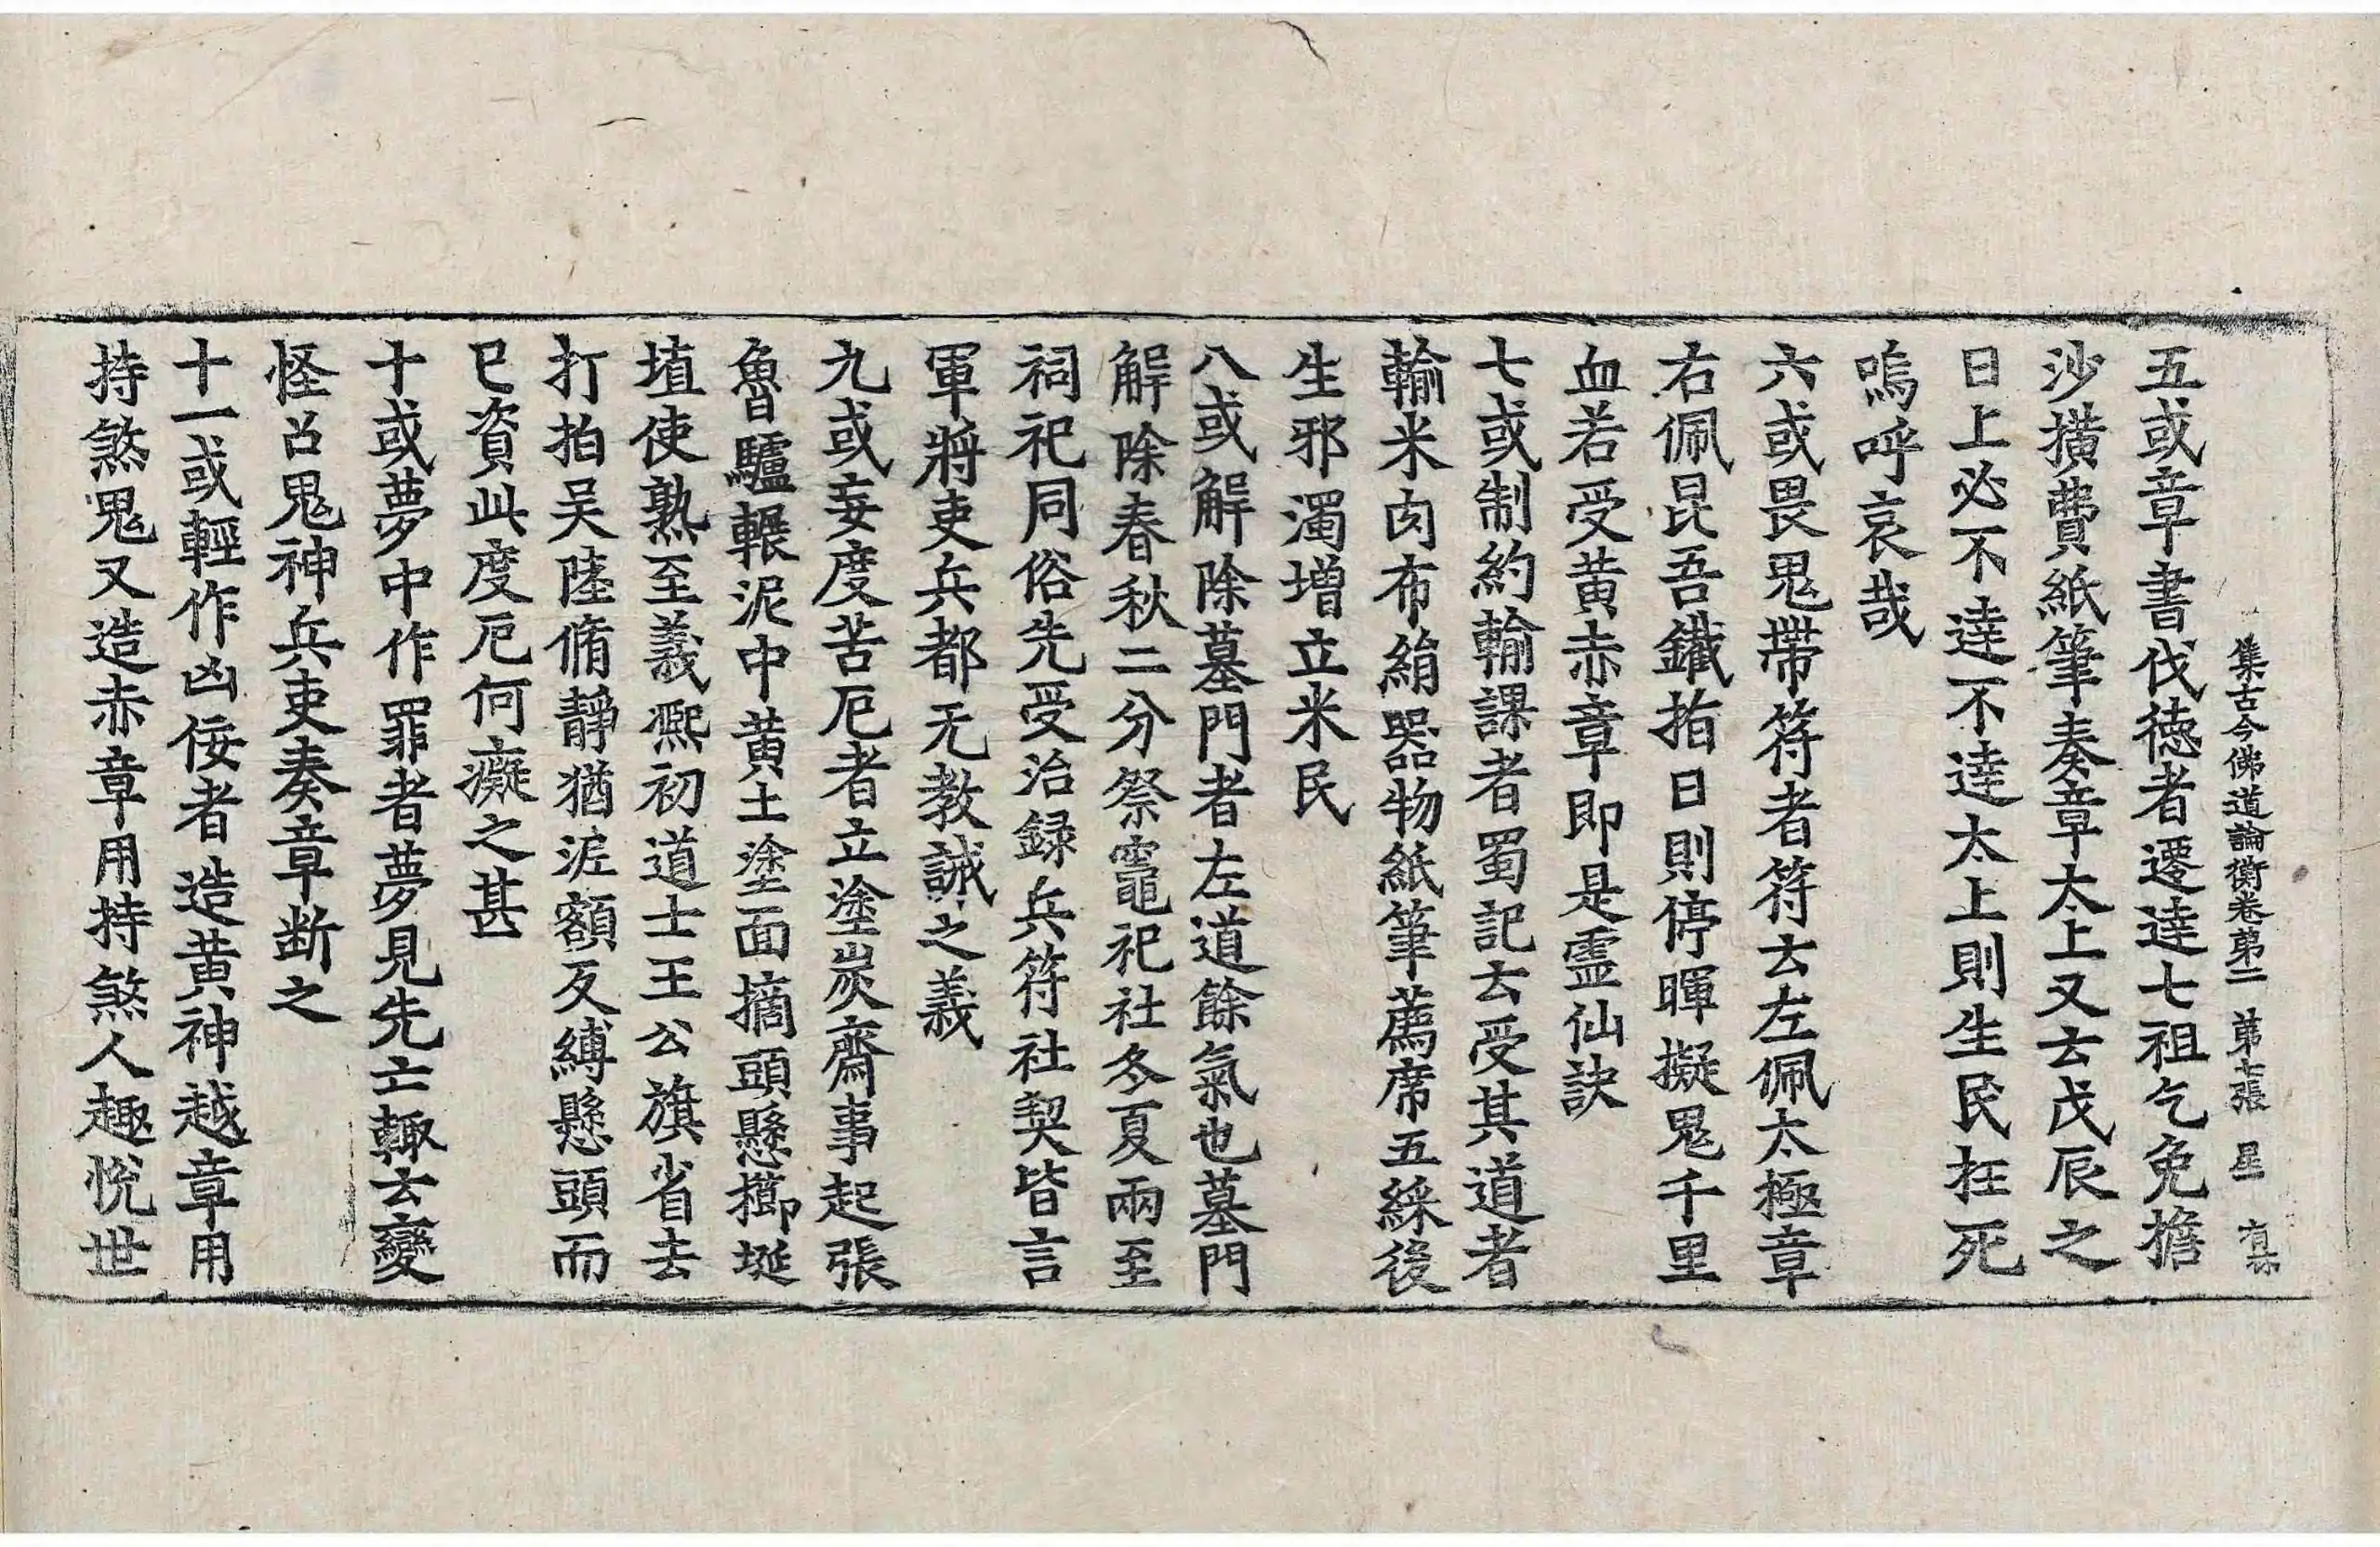 集古今佛道論衡卷第二 第七張 星
五或章書伐徳者遷達七祖乞免擔
沙擕費紙筆奏章太上又云戊辰之
日上必不達不達太上則生民抂死
嗚呼哀哉
六或畏鬼帶符者符云左佩太極章
右佩昆吾鐵指日則停暉擬鬼千里
血若受黄赤章即是靈仙訣
七或制約輸課者蜀記云受其道者
輸米肉布絹器物紙筆薦席五綵後
生邪濁增立米民
八或解除墓門者左道餘氣也墓門
解除春秋二分祭竈祀社冬夏兩至
祠祀同俗先受治録兵符社契皆言
軍將吏兵都无教誡之義
九或妄度苦厄者立塗炭齋事起張
魯驢輾泥中黄土塗面摘頭懸擳埏
埴使熟至義熈初道士王公旗省去
打拍吴陸脩靜猶泥額反縛懸頭而
已資此度厄何癡之甚
十或夢中作罪者夢見先亡輙云變
怪召鬼神兵吏奏章断之
十一或輕作凶佞者造黄神越章用
持煞鬼又造赤章用持煞人趣悅世